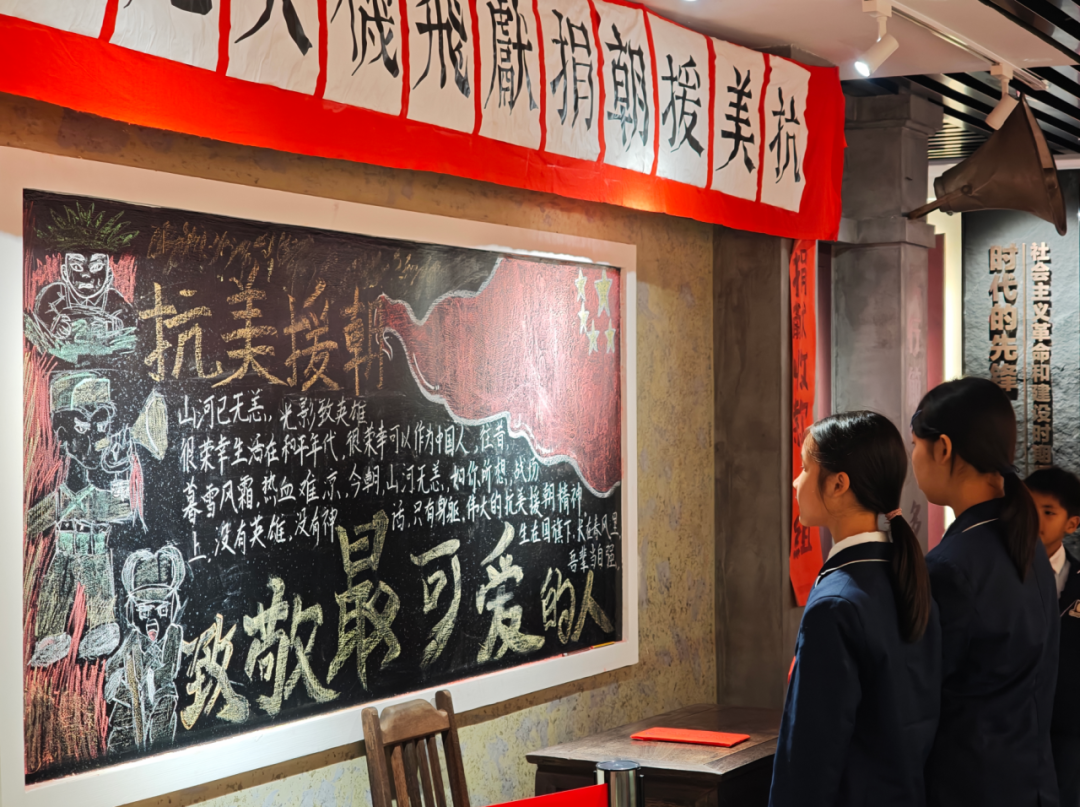 抗美援朝捐獻飛機大
抗美援朝
山河已无恙,光影致英雄
很荣幸生活在和平年代,很荣幸可以作为中国人,往昔
暮雪风霜,热血难凉,今朝,山河无恙,如你所想,战场
上,没有英雄,没有神话,只有身躯,伟大的抗美援朝精神.
生在国旗下,长在春风里
吾辈当自强.
致敬最可爱的人
社会主义革命和建设时
时代的先锋